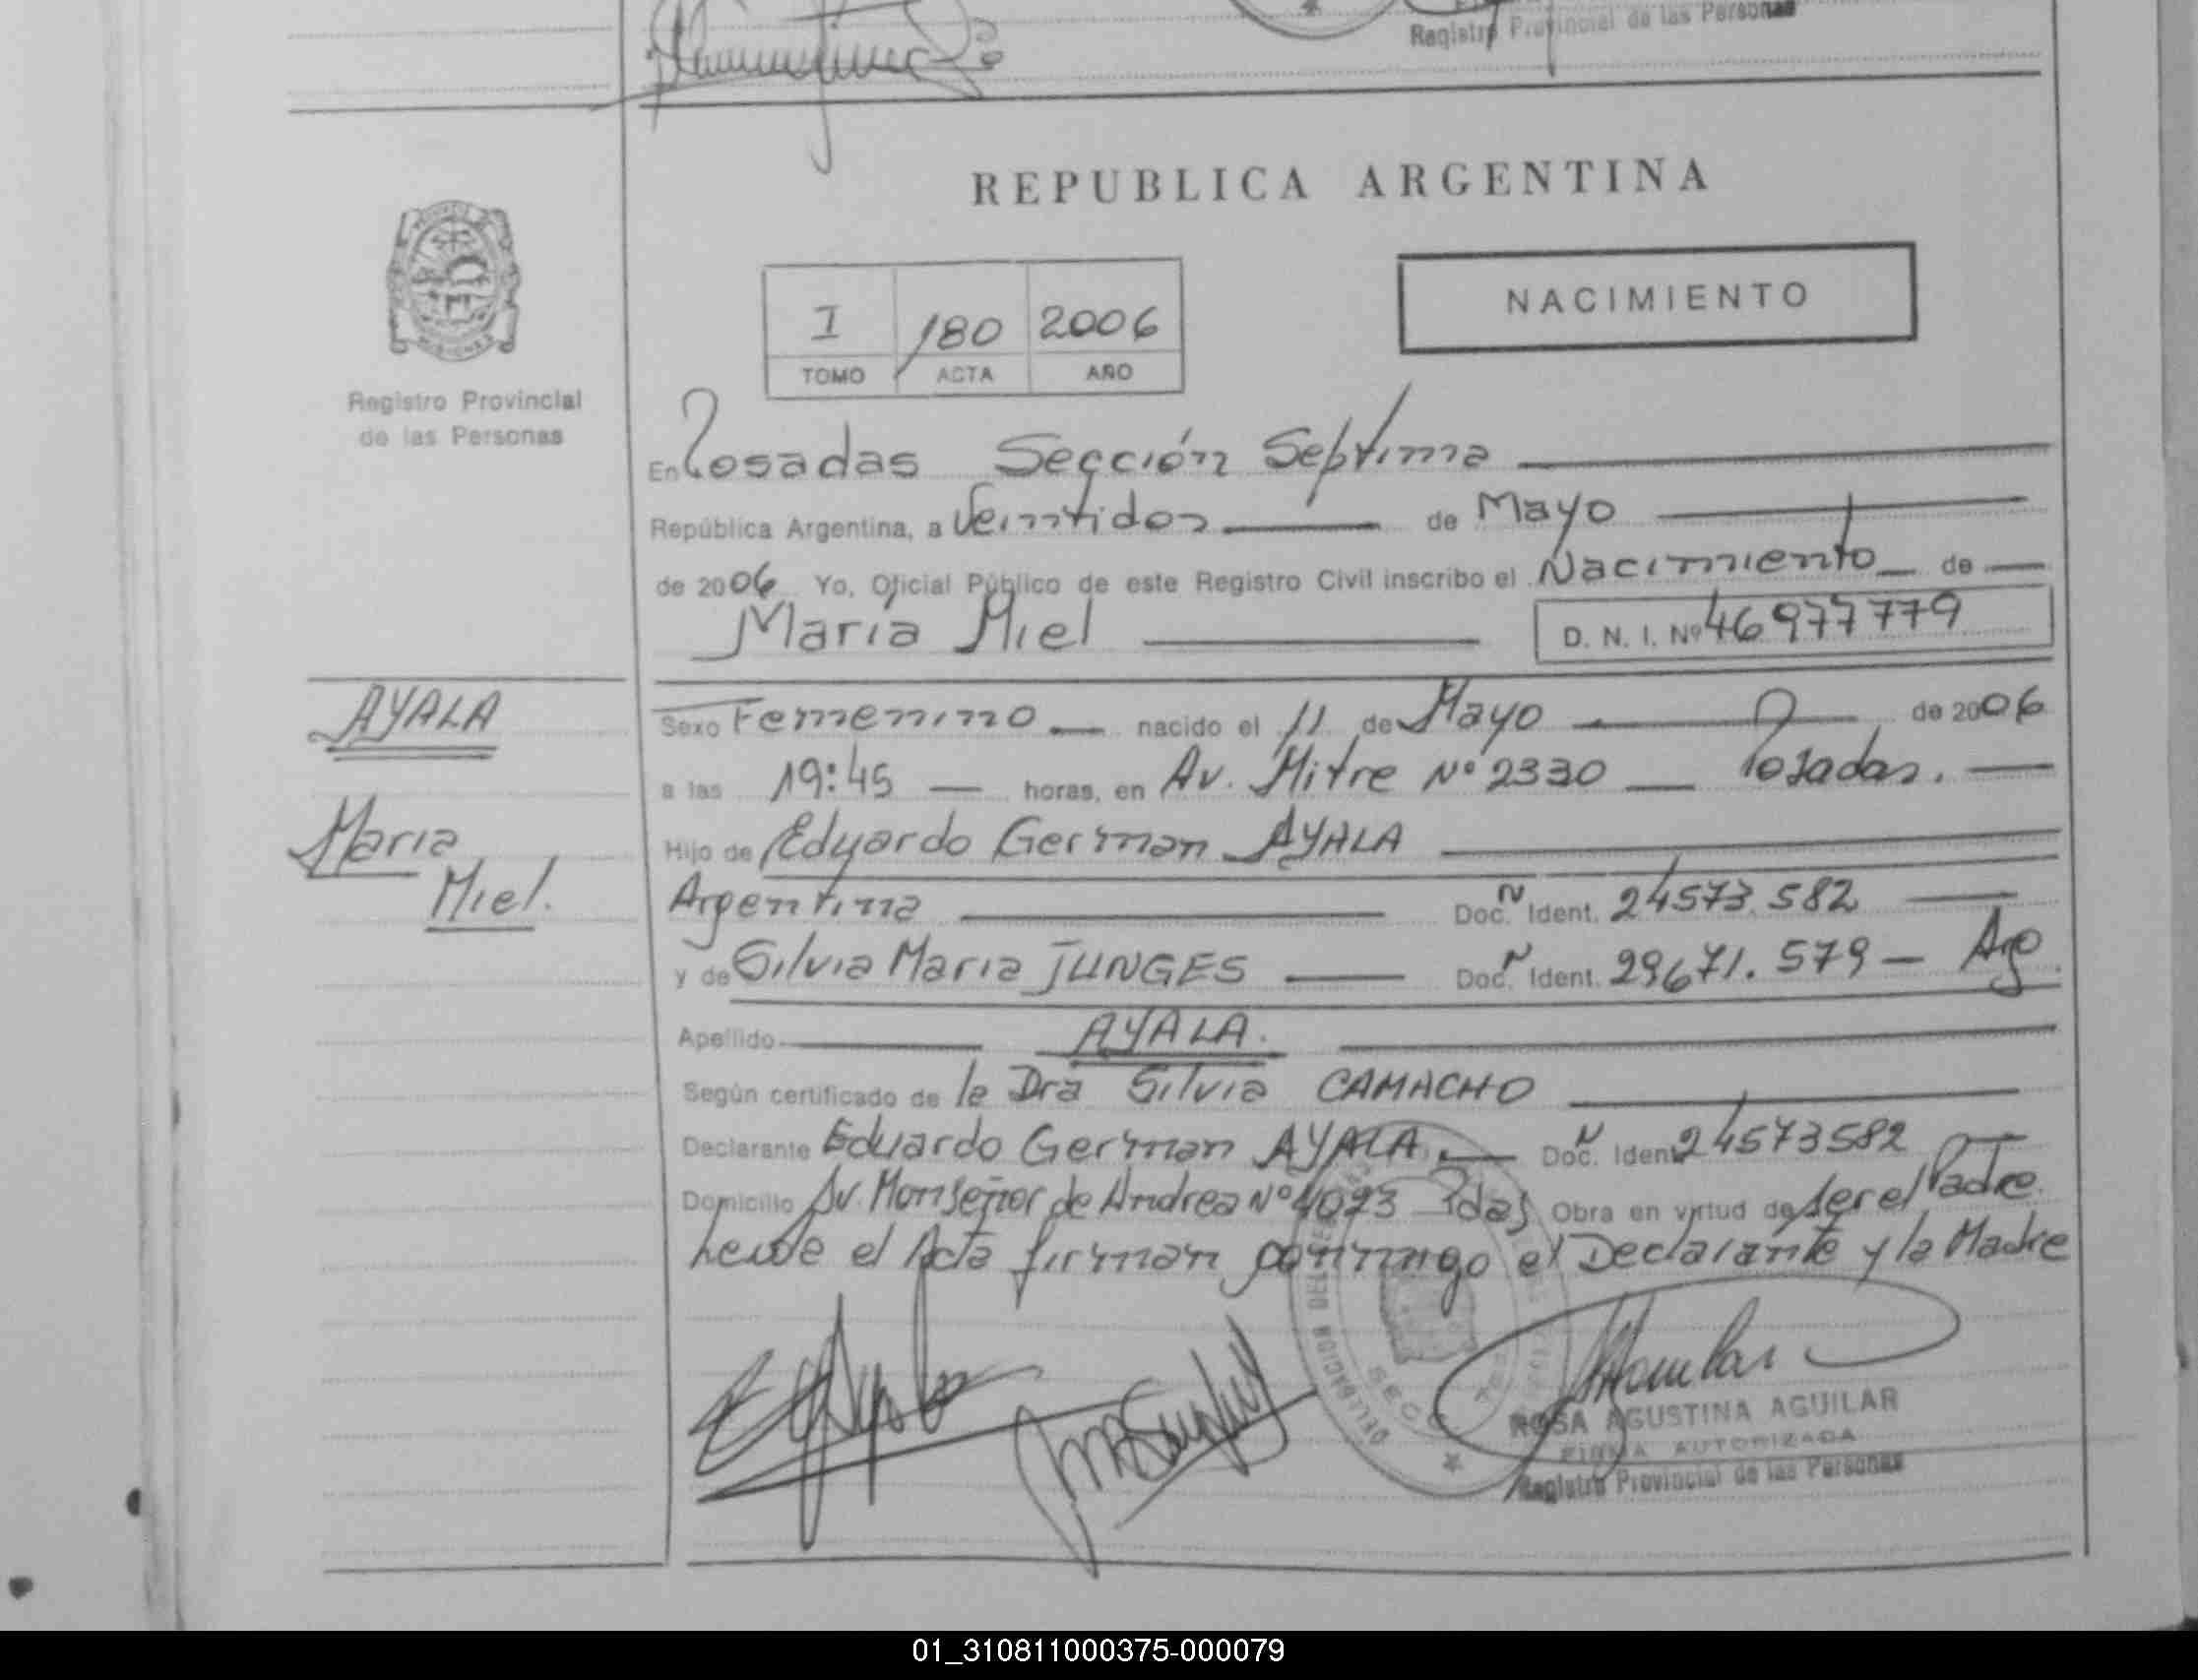 Registro Provincial de las Personas
REPUBLICA ARGENTINA
MISIONES
Registro Provincial
de las Personas
I 180 2006
TOMO ACTA AÑO
NACIMIENTO
En Posadas Sección Septima
República Argentina, a Veintidos de Mayo
de 2006 Yo, Oficial Público de este Registro Civil inscribo el Nacimiento de
Maria Miel D. N. I. Nº 46977779
AYALA
Maria
Miel.
Sexo Femenino nacido el 11 de Mayo de 2006
a las 19:45 horas, en Av. Mitre Nº 2330 Posadas.
Hijo de Eduardo German AYALA
Argentina Doc. Ident. 24573.582
y de Silvia Maria JUNGES Doc. Ident. 29671.579 - Arg
Apellido AYALA.
Según certificado de la Dra Silvia CAMACHO
Declarante Eduardo German AYALA Doc. Ident 24573582
Domicilio Av. Monseñor de Andrea Nº 4093 Pdas Obra en virtud de ser el Padre
Leida el Acta firman conmigo el Declarante y la Madre
ROSA AGUSTINA AGUILAR
FIRMA AUTORIZADA
Registro Provincial de las Personas
01_310811000375-000079